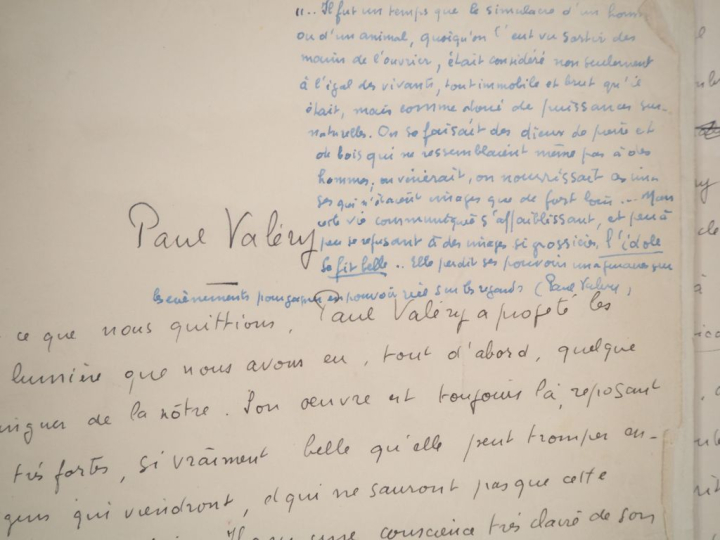 "... Il fut un temps que le simulacre d'un homme
ou d'un animal, quoiqu'on l'eut vu sortir des
mains de l'ouvrier, était considéré non seulement
à l'égal des vivants, tout immobile et brut qu'il
était, mais comme doué de puissances sur-
naturelles. On se faisait des dieux de pierre et
de bois qui ne ressemblaient même pas à des
hommes; on vénérait, on nourrissait ces ima-
ges qui n'étaient images que de fort loin ... Mais
cette vie communiquée s'affaiblissant, et peu à
peu se refusant à des images si grossières, l'idole
se fit belle .. Elle perdit ses pouvoirs imaginaires sur
les événements pour gagner un pouvoir réel sur les regards (Paul Valéry)
Paul Valéry
ce que nous quittions. Paul Valéry a projeté les
lumière que nous avons eu, tout d'abord, quelque
de la nôtre. Son oeuvre est toujours là, reposant
très fortes, si vraiment belle qu'elle peut tromper en-
qui viendront, et qui ne sauront pas que cette
Il a eu une conscience très claire de son